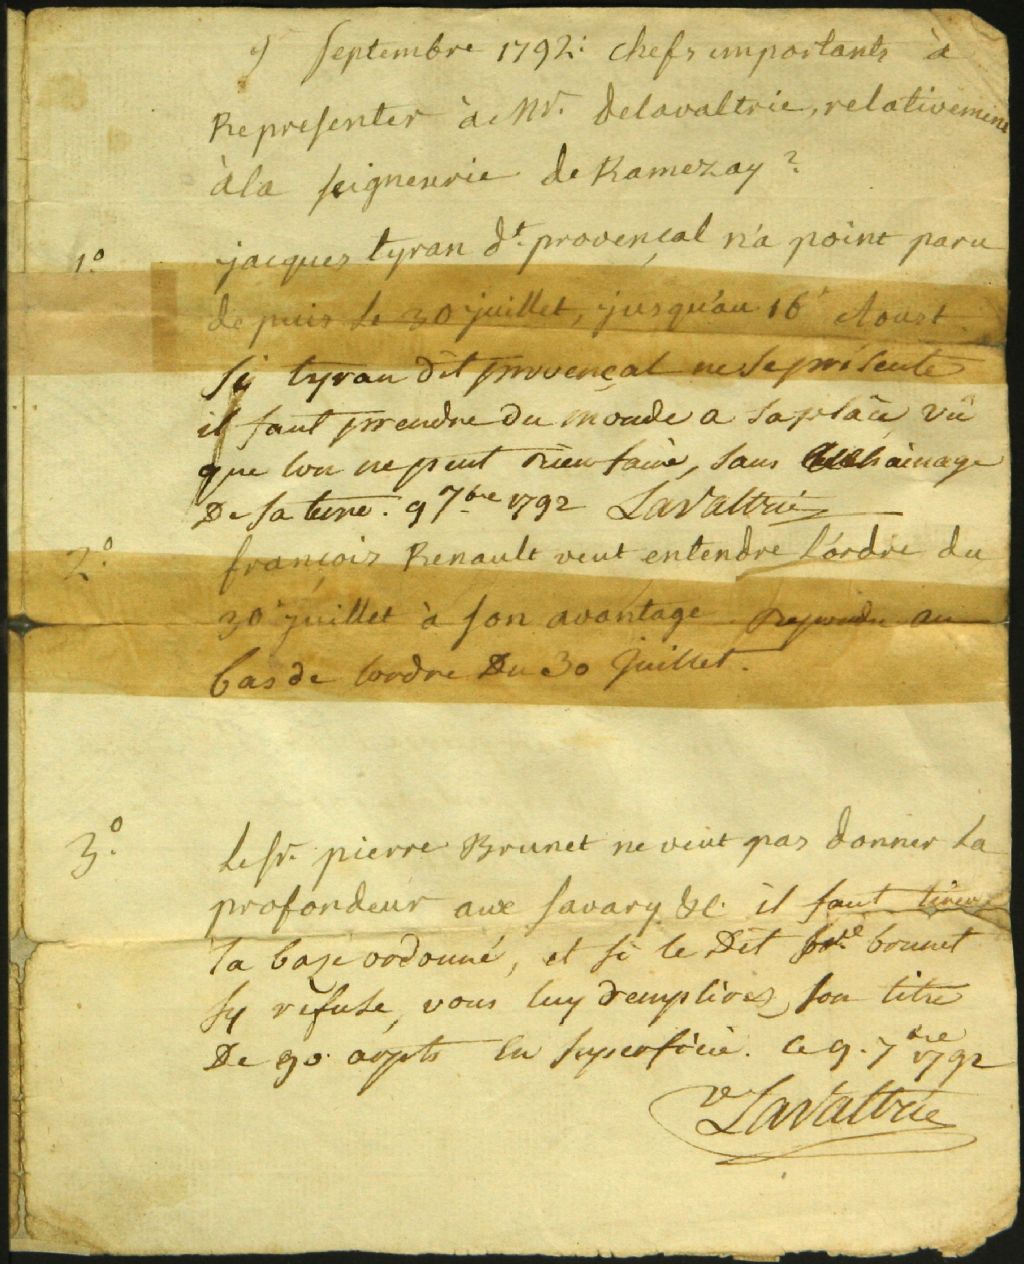 9 Septembre 1792: chefs importants à
Representer à Mr. Delavaltrie, relativement
à la seigneurie de Ramezay?
1.o jacques tyran dt. provençal n'a point paru
depuis le 30 juillet, jusqu'au 16 Aoust
Si tyran dit provençal ne se présente
il faut prendre du monde a sa place, vû
que lon ne peut rien faire, sans chainage
De sa terre. 9 7bre 1792 LaValtrie
2.o françois Renault veut entendre L'ordre du
30 juillet à son avantage Repondu au
bas de lordre Du 30 Juillet.
3.o Le Sr. pierre Brunet ne veut pas donner la
profondeur aux Savary &c. il faut tirer
la base ordonné, et si le Dit brunet
sy refuse, vous luy remplirez son titre
De 90 arpts En Superficie. Ce 9. 7bre 1792
LaValtrie